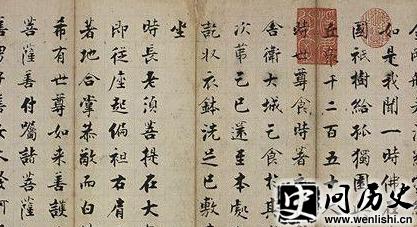 如是我聞一時佛在
國祇樹給孤獨園
丘眾千二百五十
時世尊食時著
舍衛大城乞食於其
次第乞已還至本處
訖收衣鉢洗足已敷
坐
時長老須菩提在大
即從座起偏袒右肩
著地合掌恭敬而白
希有世尊如來善護
菩薩善付囑諸菩薩
善男子善女人發
问历史
www.wenlishi.cn